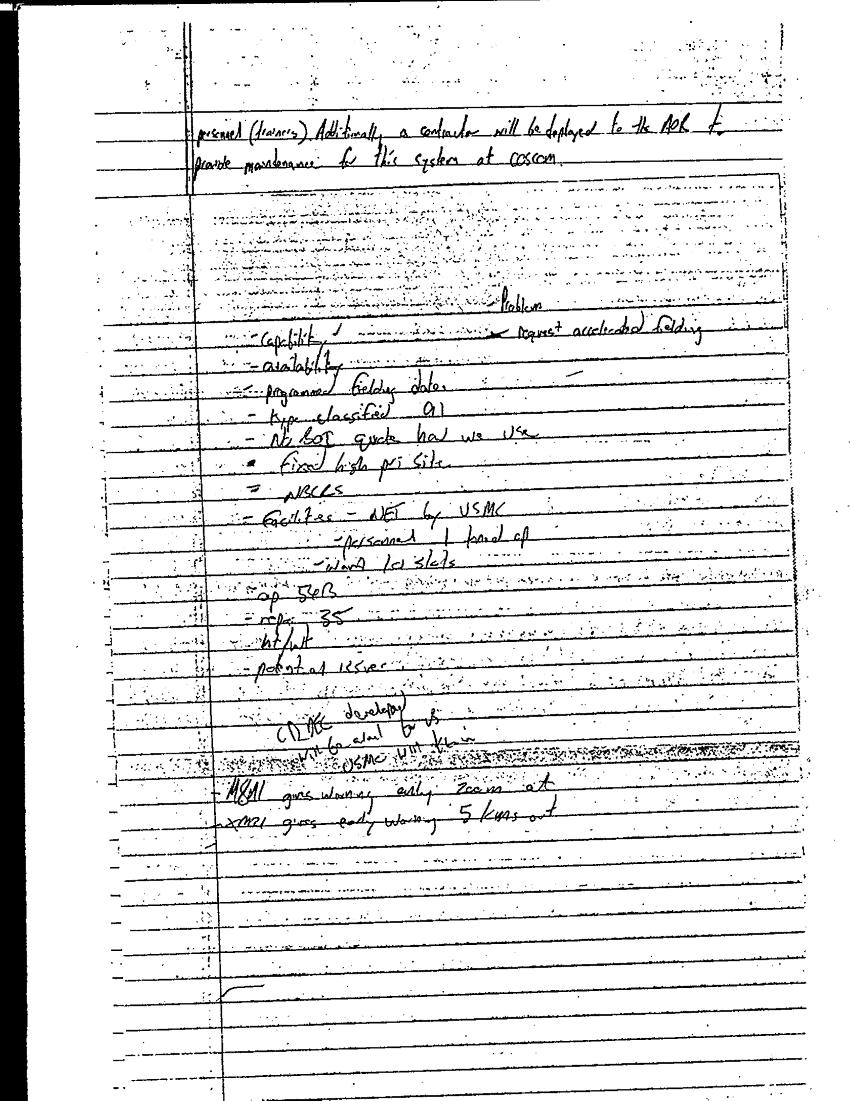 personnel (trainers). Additionally a contractor will be deployed to the AOR to
provide maintenance for this system at COSCOM.
- Problem
- Capability ✓
- request accelerated fielding
- availability
- programmed fielding date
- type classified 91
- No BOI quote how we use
- fixed high pri site
- NBCRS
- facilities - NET by USMC
- personnel
- want
- op 54B
- repr 35
- ht/wt
- potential issues
CRDEC developed
will be avail for us
USMC will train
- M8A1 gives warning only 200m out
- XM21 gives early warning 5 kms out